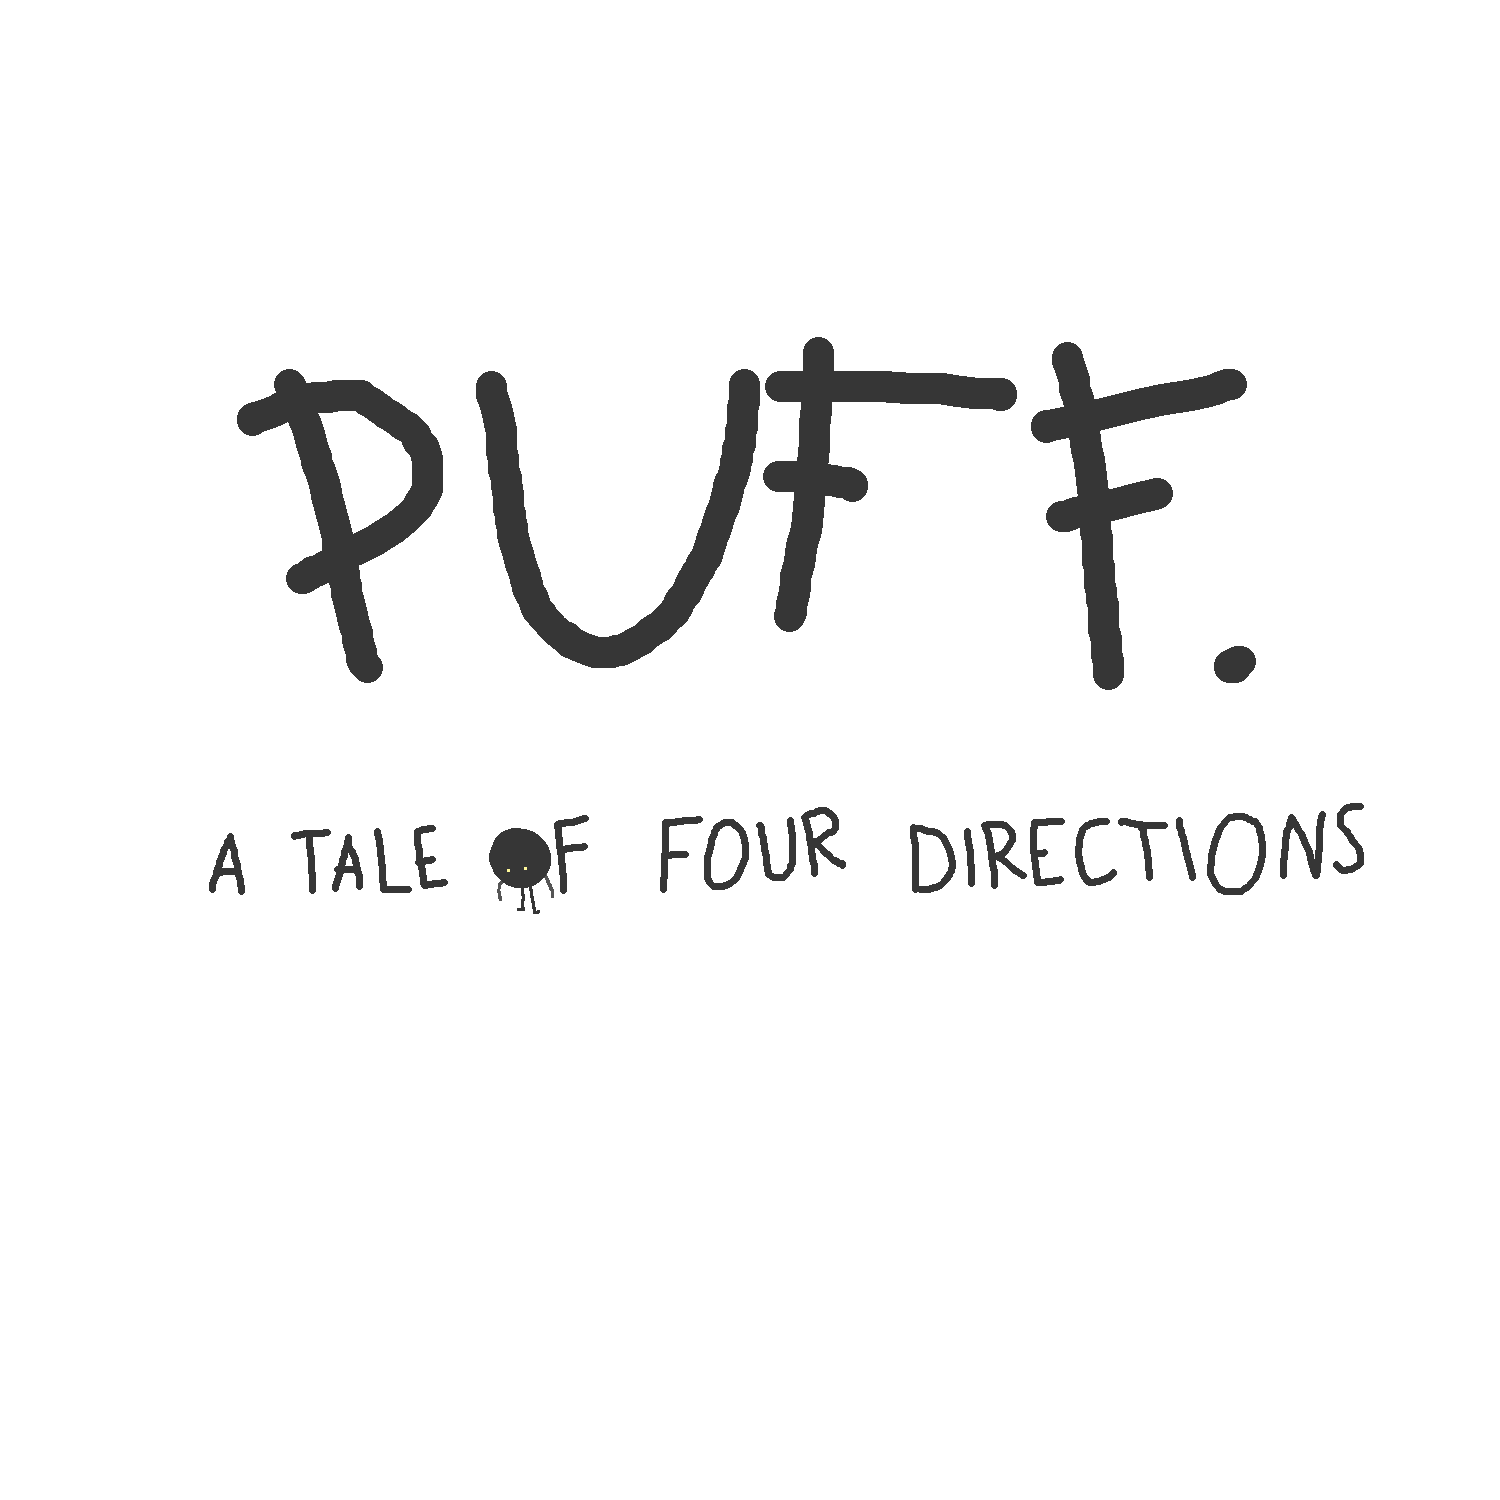 PUFF.
A TALE OF FOUR DIRECTIONS